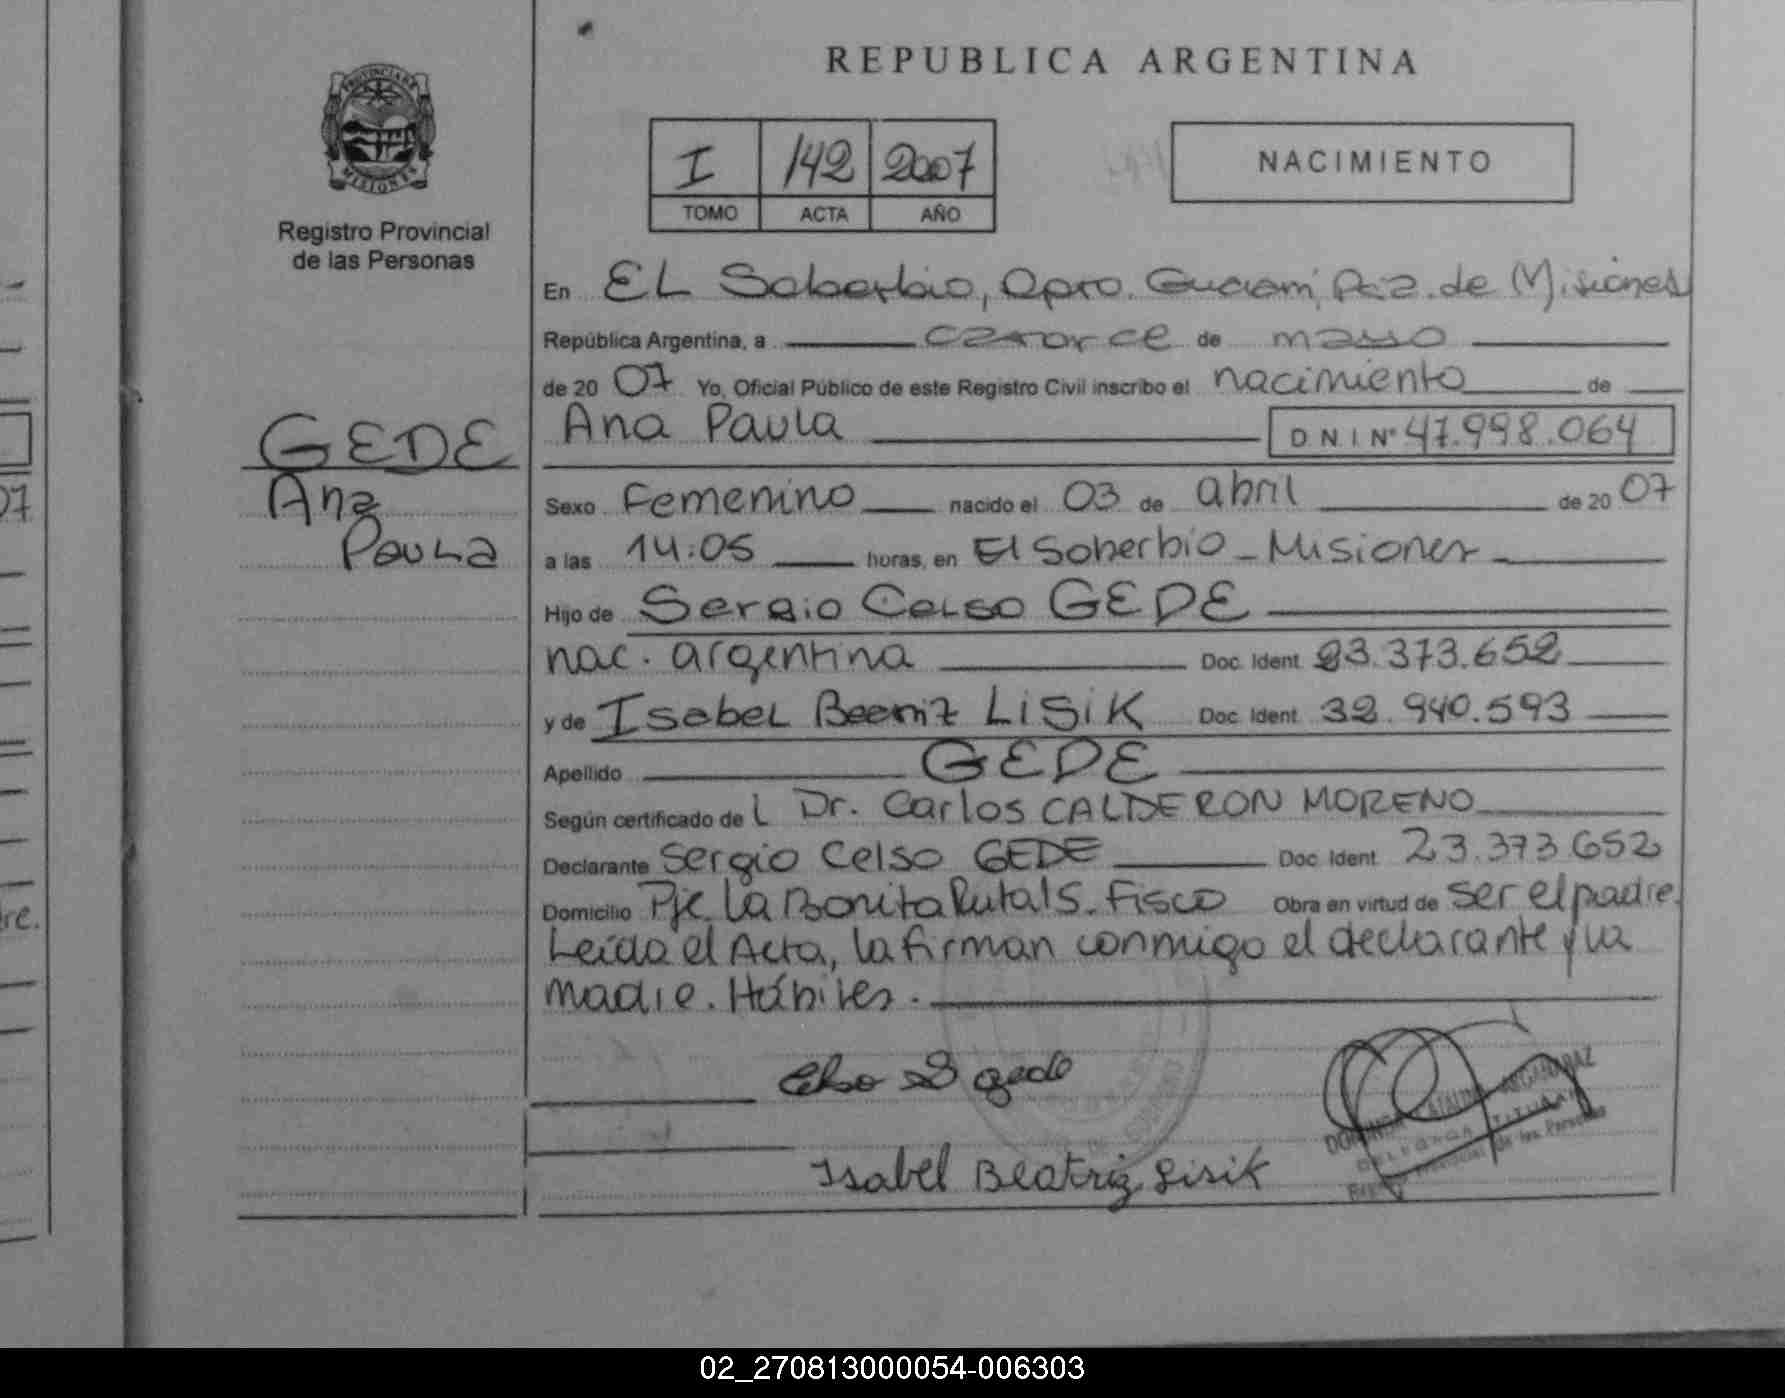 REPUBLICA ARGENTINA
PROVINCIA DE
MISIONES
Registro Provincial
de las Personas
I 142 2007
TOMO ACTA AÑO
NACIMIENTO
En EL Soberbio, Dpto. Guaraní, Pcia. de Misiones
República Argentina, a catorce de mayo
de 20 07 Yo, Oficial Público de este Registro Civil inscribo el nacimiento de
Ana Paula DNI Nº 47.998.064
GEDE
Ana
Paula
Sexo Femenino nacido el 03 de abril de 20 07
a las 14:05 horas, en El Soberbio - Misiones
Hijo de Sergio Celso GEDE
nac. argentina Doc. Ident. 23.373.652
y de Isabel Beatriz LISIK Doc. Ident. 32.940.593
Apellido GEDE
Según certificado de l Dr. Carlos CALDERON MORENO
Declarante Sergio Celso GEDE Doc. Ident. 23.373.652
Domicilio Pje. La Bonita Ruta 15. Fisco Obra en virtud de ser el padre.
Leída el Acta, la firman conmigo el declarante y la
madre. Hábiles.
Celso S gede
Isabel Beatriz Lisik
ARGAÑARAZ
TITULAR
de las Personas
07
re.
02_270813000054-006303